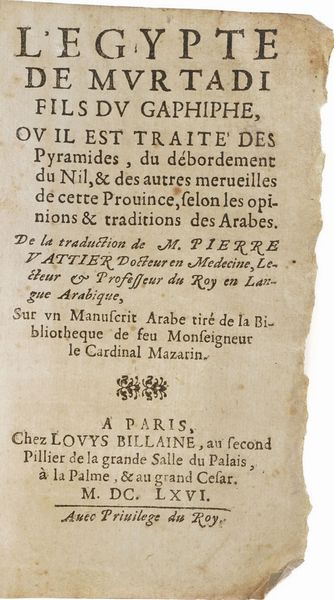 L'EGYPTE
DE MVRTADI
FILS DV GAPHIPHE,
OV IL EST TRAITE' DES
Pyramides, du débordement
du Nil, & des autres merueilles
de cette Prouince, ſelon les opi-
nions & traditions des Arabes.
De la traduction de M. PIERRE
VATTIER Docteur en Medecine, Le-
cteur & Profeſſeur du Roy en Lan-
gue Arabique,
Sur vn Manuſcrit Arabe tiré de la Bi-
bliotheque de feu Monſeigneur
le Cardinal Mazarin.
A PARIS,
Chez LOVYS BILLAINE, au ſecond
Pillier de la grande Salle du Palais,
à la Palme, & au grand Ceſar.
M. DC. LXVI.
Auec Priuilege du Roy.